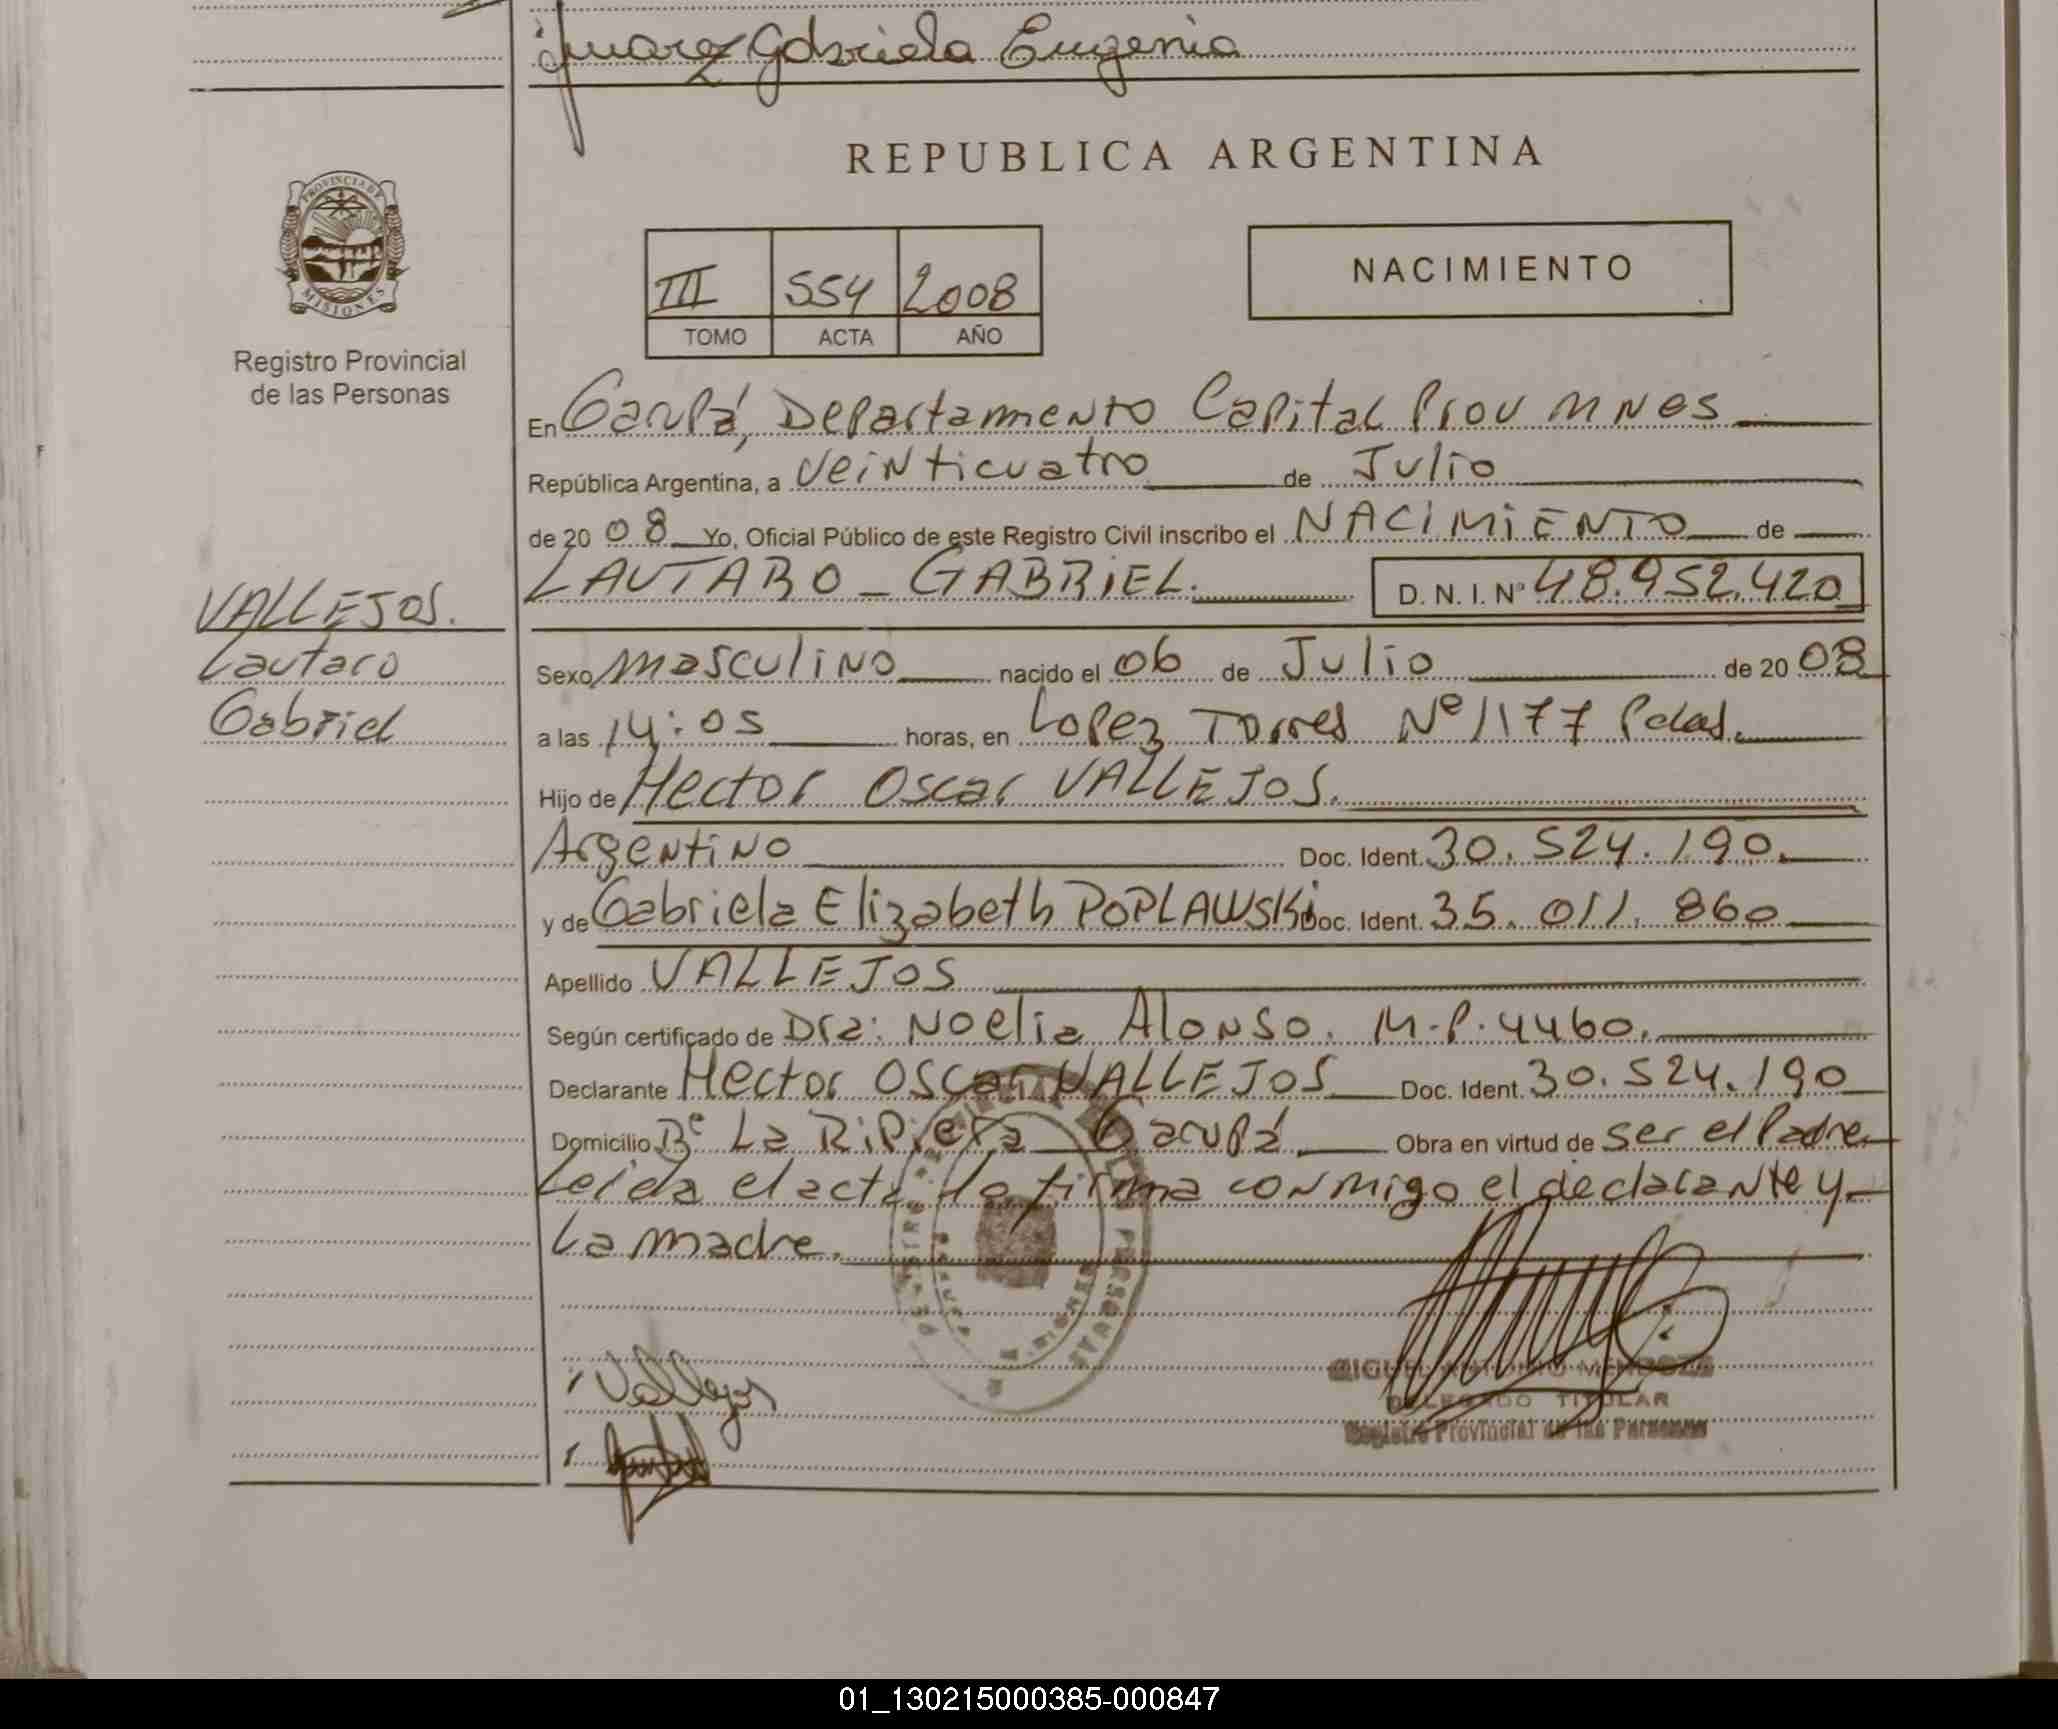 Juarez Gabriela Eugenia
REPUBLICA ARGENTINA
PROVINCIA DE
MISIONES
Registro Provincial
de las Personas
III 554 2008
TOMO ACTA AÑO
NACIMIENTO
En Garupá, Departamento Capital Prov Mnes
República Argentina, a veinticuatro de Julio
de 2008 Yo, Oficial Público de este Registro Civil inscribo el NACIMIENTO de
LAUTARO_GABRIEL. D.N.I. Nº 48.952.420
VALLEJOS.
Lautaro
Gabriel
Sexo masculino nacido el 06 de Julio de 2008
a las 14:05 horas, en Lopez Torres Nº 1177 Pdas.
Hijo de Hector Oscar VALLEJOS.
Argentino Doc. Ident. 30.524.190.
y de Gabriela Elizabeth POPLAWSKi Doc. Ident. 35.011.860
Apellido VALLEJOS
Según certificado de Dra: Noelia Alonso. M.P. 4460.
Declarante Hector Oscar VALLEJOS Doc. Ident. 30.524.190
Domicilio Bº La Ripiera Garupá Obra en virtud de ser el Padre
Leida el acta la firma conmigo el declarante y
La madre.
Vallejos
MIGUEL ANTONIO MENDOZA
DELEGADO TITULAR
Registro Provincial de las Personas
01_130215000385-000847